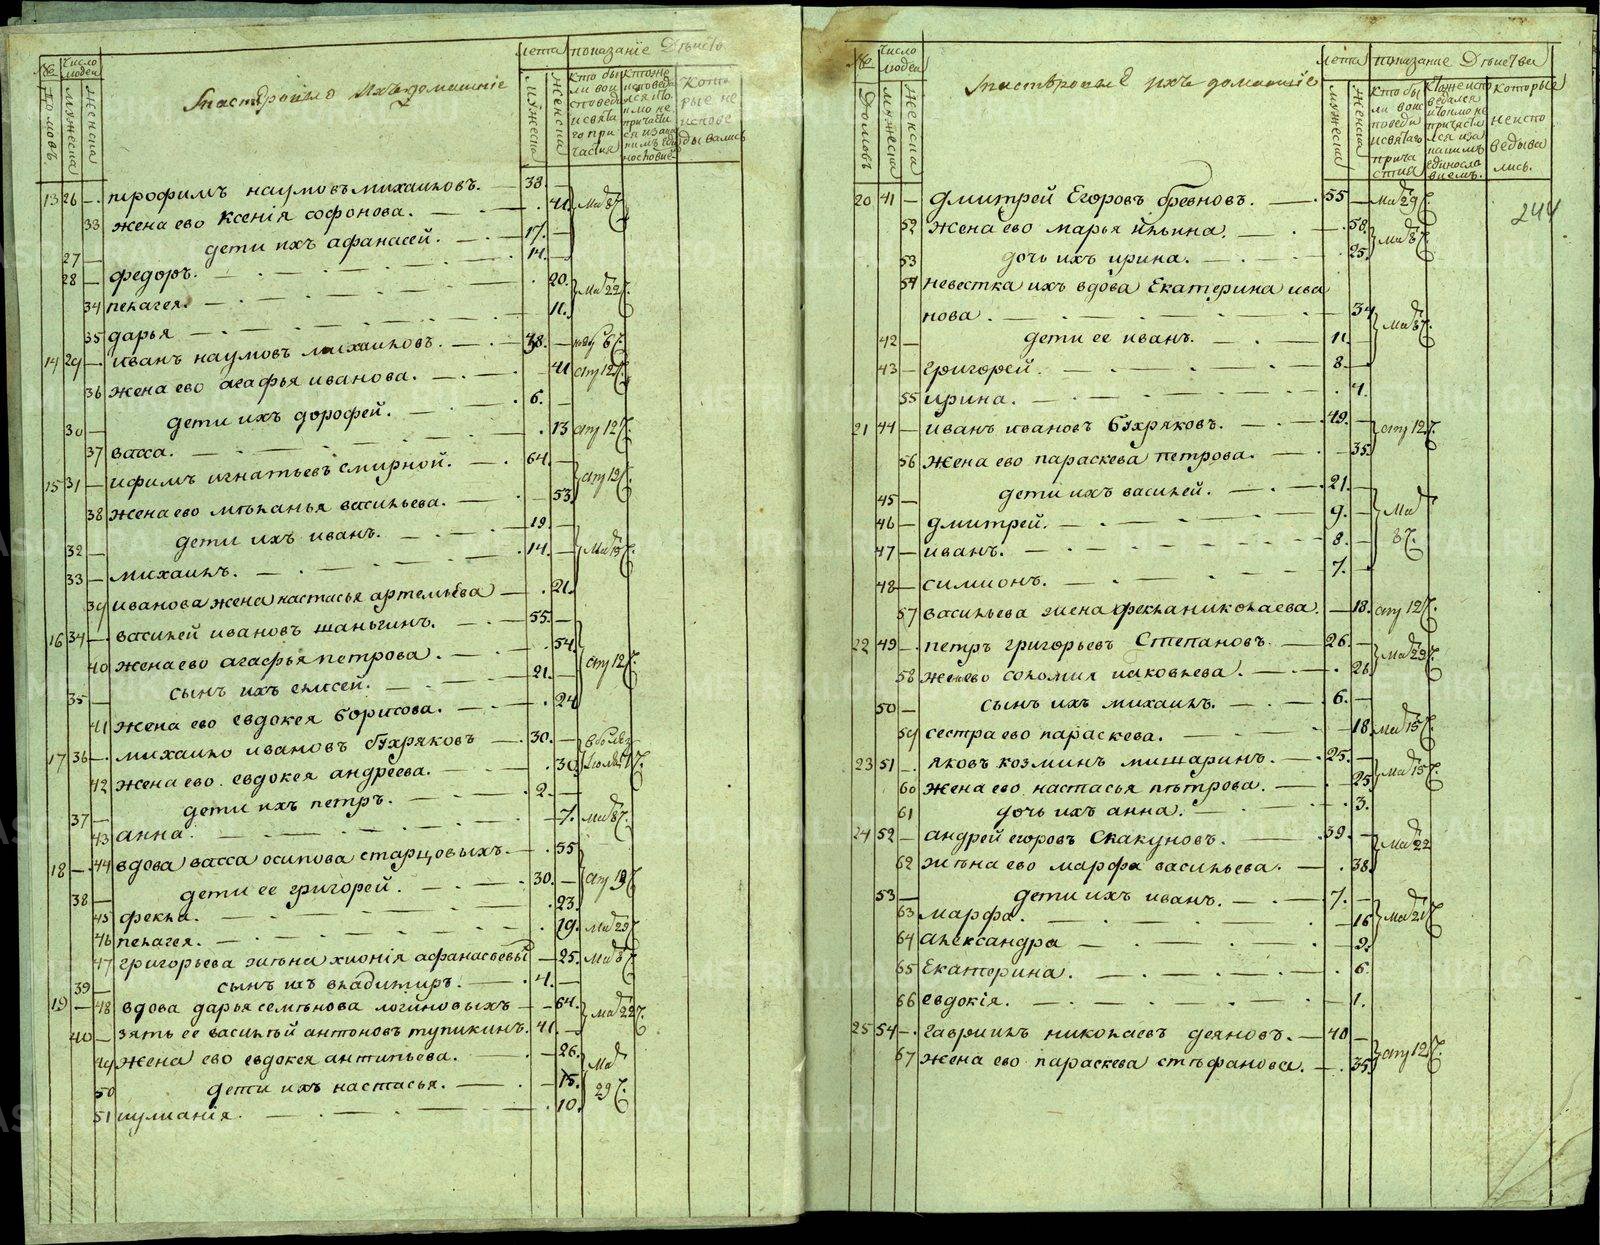 № домовъ
Число людей
мужеска
женска
лета
мужеска
женска
показание Действа
Кто бы
ли вои
споведи
исвята
го при
частия
которые не
испове
дывались
мастеровые ихъ домашние
13 26 — трофимъ наумовъ михаиловъ. — 38. —
33 жена ево ксенiя софонова. — 41 Ма 8
27 — дети ихъ афанасей. — 17. —
28 — федоръ. — 14. —
34 пелагея. — 20. Ма 22
35 дарья — 11.
14 29 — иванъ наумовъ михаиловъ. — 38. —
36 жена ево агафья иванова. — 41 апр 12
30 — дети ихъ дорофей. — 6. —
37 васса. — 13 апр 12
15 31 — ифимъ игнатьевъ смирной. — 64. —
38 жена ево меланья васильева. — 53 апр 12
32 — дети ихъ иванъ. — 19. —
33 — михаилъ. — 14. — Ма 15
39 иванова жена настасья артемьева — 21.
16 34 — василей ивановъ шаньгинъ. — 55. —
40 жена ево агафья петрова. — 54. апр 12
35 — сынъ ихъ елисей. — 21. —
41 жена ево евдокея борисова. — 24
17 36 — михаило ивановъ бухряковъ — 30. —
42 жена ево евдокея андреева. — 30
37 — дети ихъ петръ. — 2. —
43 анна. — 7. Ма 8
18 — 44 вдова васса осипова старцовыхъ. — 55
38 — дети ее григорей. — 30. —
45 фекла. — 23.
46 пелагея. — 19. Ма 29
47 григорьева жена хионiя афанасьевы — 25. Ма 8
39 — сынъ ихъ владимиръ. — 4. —
19 — 48 вдова дарья семенова логиновыхъ — 64. Ма 22
40 — зять ее василей антоновъ тупикинъ. 41. —
49 жена ево евдокея антипьева. — 26. Ма
50 дети ихъ настасья. — 15. 29
51 иулианiя. — 10.
№ домовъ
число людей
мужеска
женска
лета
мужеска
женска
показание Действа
кто бы
ли вои
споведи
исвятаго
прича
стия
которые
неиспо
ведыва
лись.
мастеровые ихъ домашние
244
20 41 — дмитрей Егоровъ бревновъ. — 55 — Ма 29
52 жена ево марья ильина. — 58. Ма 8
53 дочь ихъ ирина. — 25.
54 невестка ихъ вдова Екатерина ива
нова. — 34 Ма 8
42 — дети ее иванъ. — 11. —
43 — григорей. — 8. —
55 ирина. — 4.
21 44 — иванъ ивановъ бухряковъ. — 49. — апр 12
56 жена ево параскева петрова. — 35.
45 — дети ихъ василей. — 21. —
46 — дмитрей. — 9. — Ма
47 — иванъ. — 8. — 8
48 — симионъ. — 7. —
57 васильева жена фекла николаева. — 18. апр 12
22 49 — петръ григорьевъ Степановъ — 26. —
58 жена ево соломия иаковлева. — 26 Ма 29
50 — сынъ ихъ михаилъ. — 6. —
59 сестра ево параскева. — 18 Ма 15
23 51 — яковъ козминъ мишаринъ. — 25. —
60 жена ево настасья петрова. — 25 Ма 15
61 дочь ихъ анна. — 3.
24 52 — андрей егоровъ Скакуновъ. — 39. — Ма 22
62 жена ево марфа васильева. — 38
53 — дети ихъ иванъ. — 7. —
63 марфа. — 16 Ма 21
64 александра — 9.
65 Екатерина. — 6.
66 евдокiя. — 1.
25 54 — гаврилъ николаевъ деяновъ. — 40 —
67 жена ево параскева стефанова. — 35. апр 12